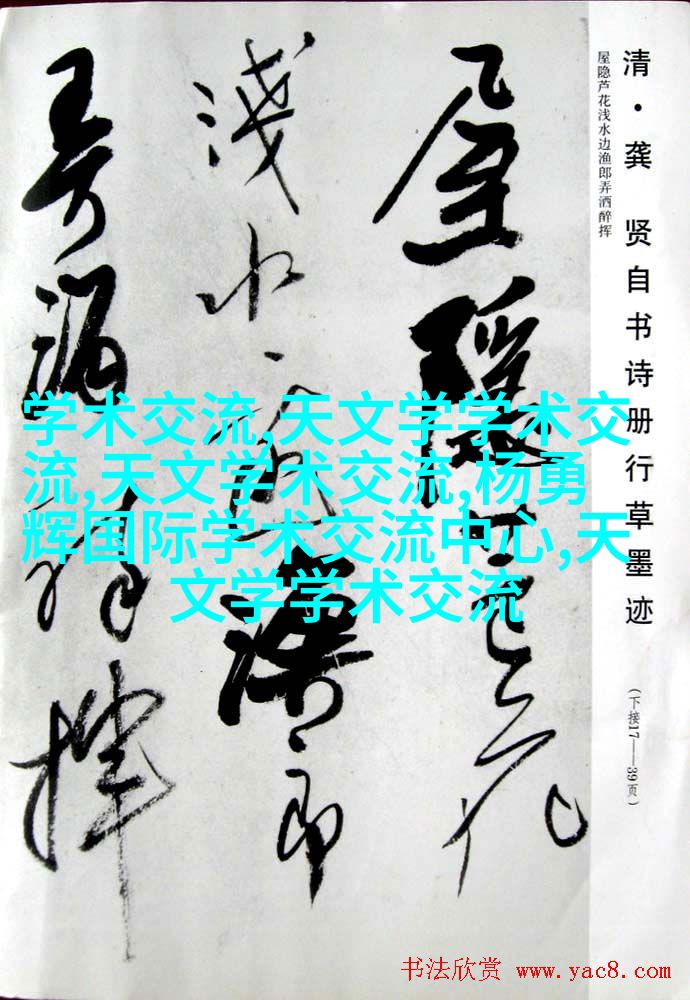 清·龚 贤自书诗册行草墨迹
屋隐芦花浅水边渔郎弄酒醉挥
(下接17——39页)
屋隐芦花
淺水邊漁郎
弄酒醉揮
学术交流,天文学学术交
流,天文学术交流,杨勇
辉国际学术交流中心,天
文学学术交流
书法欣赏 www.yac8.com